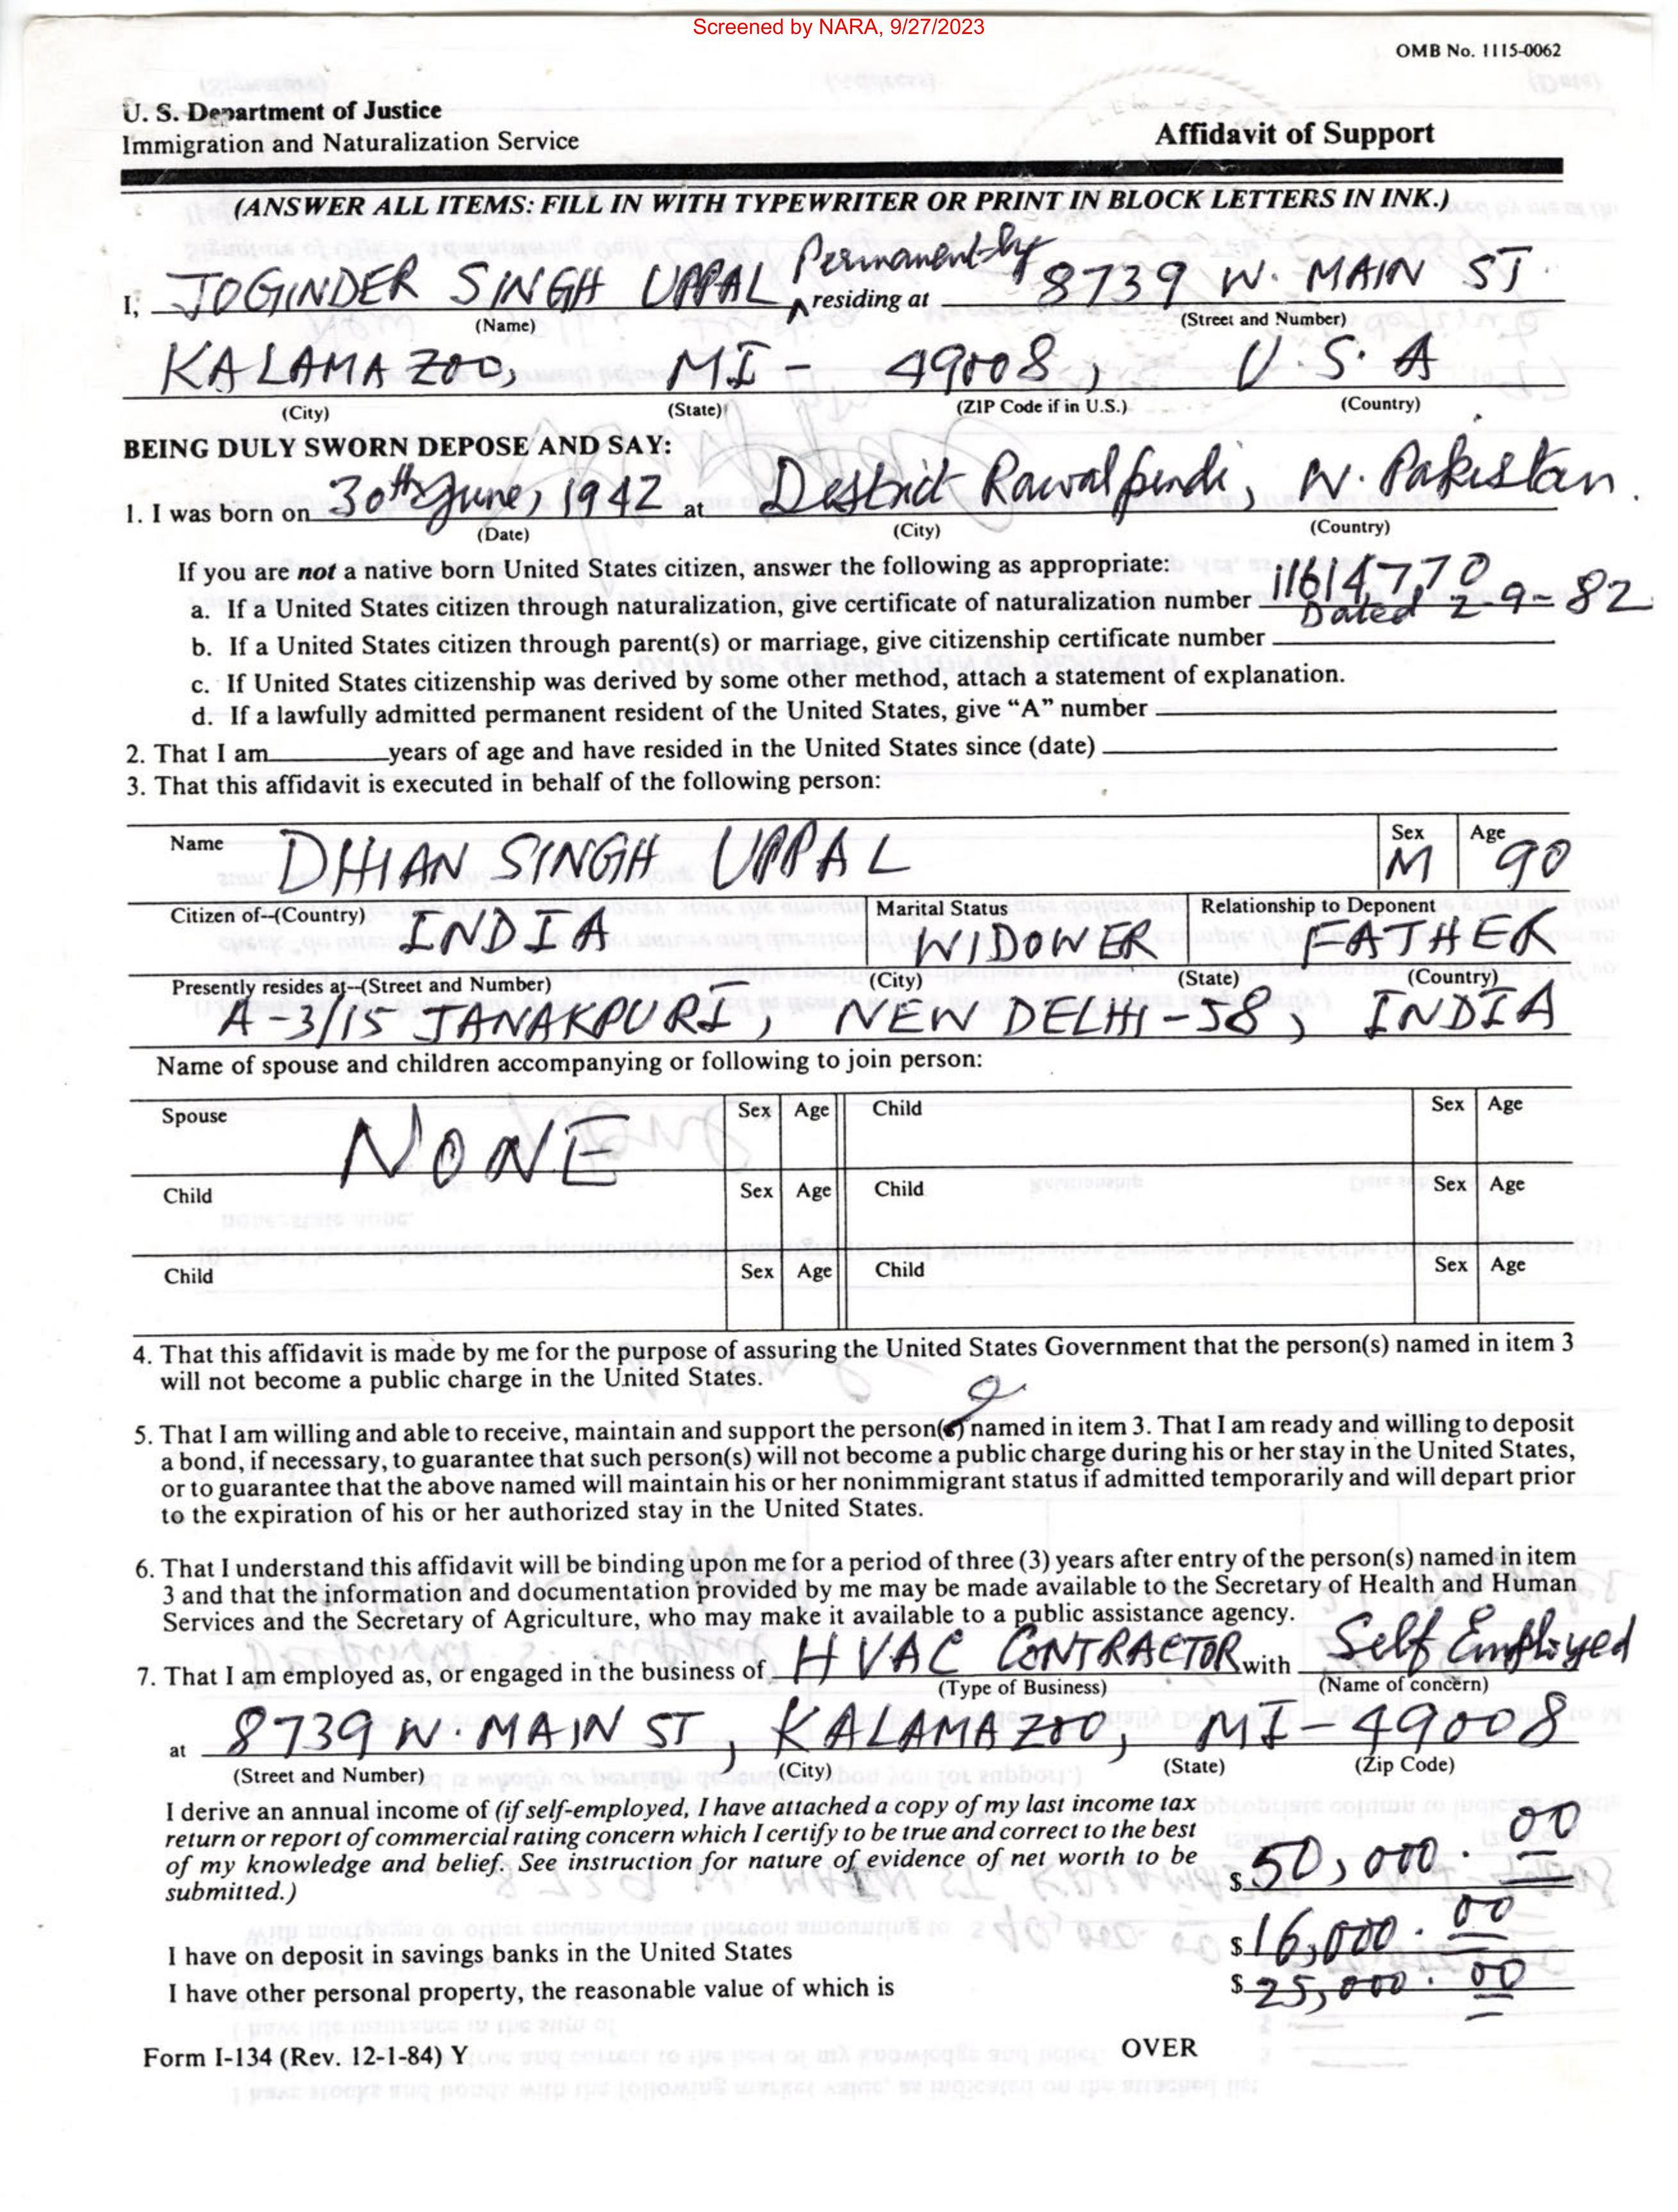 Screened by NARA, 9/27/2023
OMB No. 1115-0062
U. S. Department of Justice
Immigration and Naturalization Service
Affidavit of Support
(ANSWER ALL ITEMS: FILL IN WITH TYPEWRITER OR PRINT IN BLOCK LETTERS IN INK.)
I, JOGINDER SINGH UPPAL Permanently residing at 8739 W. MAIN ST.
(Name) (Street and Number)
KALAMAZOO, MI - 49008, U.S.A
(City) (State) (ZIP Code if in U.S.) (Country)
BEING DULY SWORN DEPOSE AND SAY:
1. I was born on 30th June, 1942 at District Rawalpindi, W. Pakistan.
(Date) (City) (Country)
If you are not a native born United States citizen, answer the following as appropriate:
a. If a United States citizen through naturalization, give certificate of naturalization number 11614770
Dated 2-9-82
b. If a United States citizen through parent(s) or marriage, give citizenship certificate number
c. If United States citizenship was derived by some other method, attach a statement of explanation.
d. If a lawfully admitted permanent resident of the United States, give “A” number
2. That I am years of age and have resided in the United States since (date)
3. That this affidavit is executed in behalf of the following person:
Name DHIAN SINGH UPPAL Sex M Age 90
Citizen of--(Country) INDIA Marital Status WIDOWER Relationship to Deponent FATHER
Presently resides at--(Street and Number) (City) (State) (Country)
A-3/15 JANAKPURI, NEW DELHI-58, INDIA
Name of spouse and children accompanying or following to join person:
Spouse NONE Sex Age Child Sex Age
Child Sex Age Child Sex Age
Child Sex Age Child Sex Age
4. That this affidavit is made by me for the purpose of assuring the United States Government that the person(s) named in item 3
will not become a public charge in the United States.
5. That I am willing and able to receive, maintain and support the person(s) named in item 3. That I am ready and willing to deposit
a bond, if necessary, to guarantee that such person(s) will not become a public charge during his or her stay in the United States,
or to guarantee that the above named will maintain his or her nonimmigrant status if admitted temporarily and will depart prior
to the expiration of his or her authorized stay in the United States.
6. That I understand this affidavit will be binding upon me for a period of three (3) years after entry of the person(s) named in item
3 and that the information and documentation provided by me may be made available to the Secretary of Health and Human
Services and the Secretary of Agriculture, who may make it available to a public assistance agency.
7. That I am employed as, or engaged in the business of HVAC CONTRACTOR with Self Employed
(Type of Business) (Name of concern)
at 8739 W. MAIN ST, KALAMAZOO, MI-49008
(Street and Number) (City) (State) (Zip Code)
I derive an annual income of (if self-employed, I have attached a copy of my last income tax
return or report of commercial rating concern which I certify to be true and correct to the best
of my knowledge and belief. See instruction for nature of evidence of net worth to be
submitted.) $ 50,000.00
I have on deposit in savings banks in the United States $ 16,000.00
I have other personal property, the reasonable value of which is $ 25,000.00
Form I-134 (Rev. 12-1-84) Y OVER